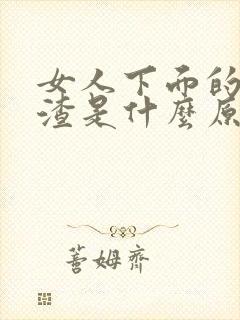 女人下面的
渣是什麼原
蓍姆齊